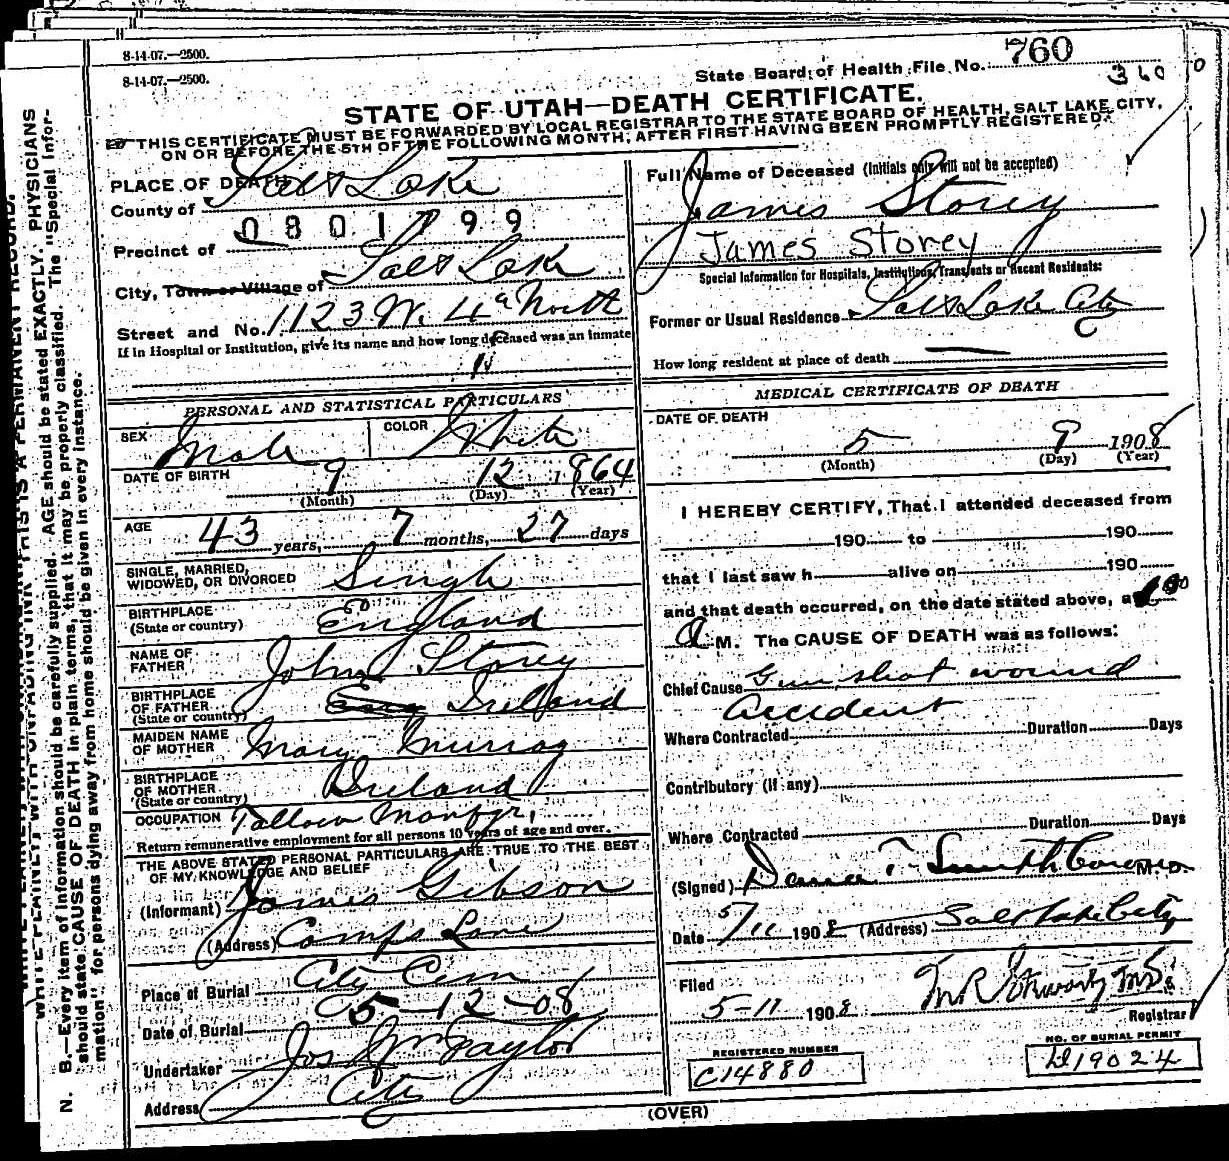 8-14-07.—2500.
8-14-07.—2500.
State Board of Health File No. 760
360
STATE OF UTAH—DEATH CERTIFICATE.
THIS CERTIFICATE MUST BE FORWARDED BY LOCAL REGISTRAR TO THE STATE BOARD OF HEALTH, SALT LAKE CITY,
ON OR BEFORE THE 5TH OF THE FOLLOWING MONTH, AFTER FIRST HAVING BEEN PROMPTLY REGISTERED.
PLACE OF DEATH
County of Salt Lake
0801799
Precinct of
City, Town or Village of Salt Lake
Street and No. 1123 W. 4th North
If in Hospital or Institution, give its name and how long deceased was an inmate
PERSONAL AND STATISTICAL PARTICULARS
SEX Male COLOR White
DATE OF BIRTH 9 12 1864
(Month) (Day) (Year)
AGE 43 years, 7 months, 27 days
SINGLE, MARRIED,
WIDOWED, OR DIVORCED Single
BIRTHPLACE
(State or country) England
NAME OF
FATHER John Storey
BIRTHPLACE
OF FATHER
(State or country) Eng Ireland
MAIDEN NAME
OF MOTHER Mary Murray
BIRTHPLACE
OF MOTHER
(State or country) Ireland
OCCUPATION Tallow Manfgr.
Return remunerative employment for all persons 10 years of age and over.
THE ABOVE STATED PERSONAL PARTICULARS ARE TRUE TO THE BEST
OF MY KNOWLEDGE AND BELIEF
(Informant) James Gibson
(Address) Camps Lane
Place of Burial City Cem
Date of Burial 5-12-08
Undertaker Jos Wm Taylor
Address City
Full Name of Deceased (Initials only will not be accepted)
James Storey
James Storey
Special Information for Hospitals, Institutions, Transients or Recent Residents:
Former or Usual Residence Salt Lake City
How long resident at place of death
MEDICAL CERTIFICATE OF DEATH
DATE OF DEATH
5 9 1908
(Month) (Day) (Year)
I HEREBY CERTIFY, That I attended deceased from
190 to 190
that I last saw h alive on 190
and that death occurred, on the date stated above, at
a M. The CAUSE OF DEATH was as follows:
Chief Cause Gun shot wound
accident
Where Contracted Duration Days
Contributory (if any)
Where Contracted Duration Days
(Signed) Dana T. Smith Coroner M. D.
Date 5/11 1908 (Address) Salt Lake City
Filed
5-11 1908
Registrar
REGISTERED NUMBER
C14880
NO. OF BURIAL PERMIT
D19024
(OVER)
WRITE PLAINLY, WITH UNFADING INK—THIS IS A PERMANENT RECORD.
N. B.—Every item of information should be carefully supplied. AGE should be stated EXACTLY. PHYSICIANS
should state CAUSE OF DEATH in plain terms, that it may be properly classified. The "Special Infor-
mation" for persons dying away from home should be given in every instance.